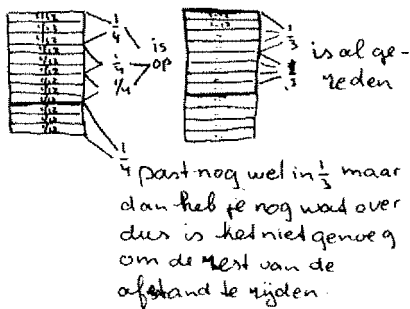 1/12
1/12
1/12
1/12
1/12
1/12
1/12
1/12
1/12
1/12
1/12
1/4
1/4
1/4
is
op
1/4
1/12
1/12
1/3
1/3
is al ge-
reden
1/4 past nog wel in 1/3 maar
dan heb je nog wat over
dus is het niet genoeg
om de rest van de
afstand te rijden.